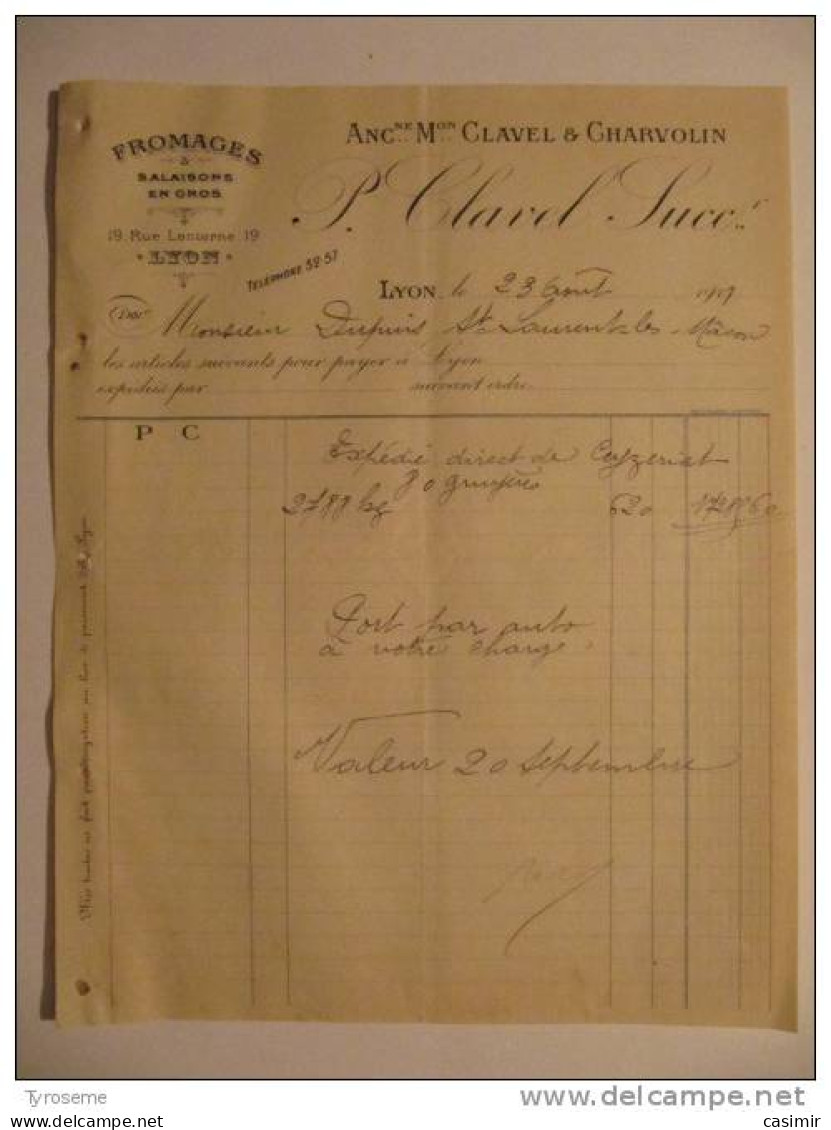 FROMAGES
&
SALAISONS
EN GROS
19, Rue Lanterne 19
LYON
TÉLÉPHONE 52-57
ANCNE MON CLAVEL & CHARVOLIN
P. Clavel Succr
LYON, le 23 août 1919
Doit
Monsieur Dupuis St Laurent les Mâcon
les articles suivants pour payer à Lyon
expédiés par suivant ordre
P C
Expédié direct de Ceyzeriat
80 gruyères
2788 kg 620 17285 60
Port par auto
à votre charge.
Valeur 20 Septembre
Tyroseme
www.delcampe.net
casimir